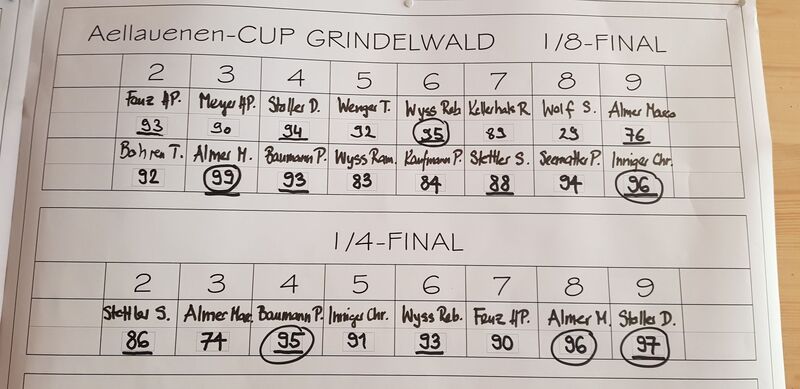 Aellauenen-CUP GRINDELWALD 1/8-FINAL
2 3 4 5 6 7 8 9
Fanz HP. Meyer HP. Stoller D. Wenger T. Wyss Reb. Kellerhals R. Wolf S. Almer Marco
93 90 94 92 95 89 29 76
Bohren T. Almer M. Baumann P. Wyss Ram. Kaufmann P. Stettler S. Seematter P. Inniger Chr.
92 99 93 83 84 88 94 96
1/4-FINAL
2 3 4 5 6 7 8 9
Stettler S. Almer Mar. Baumann P. Inniger Chr. Wyss Reb. Fanz HP. Almer M. Stoller D.
86 74 95 91 93 90 96 97